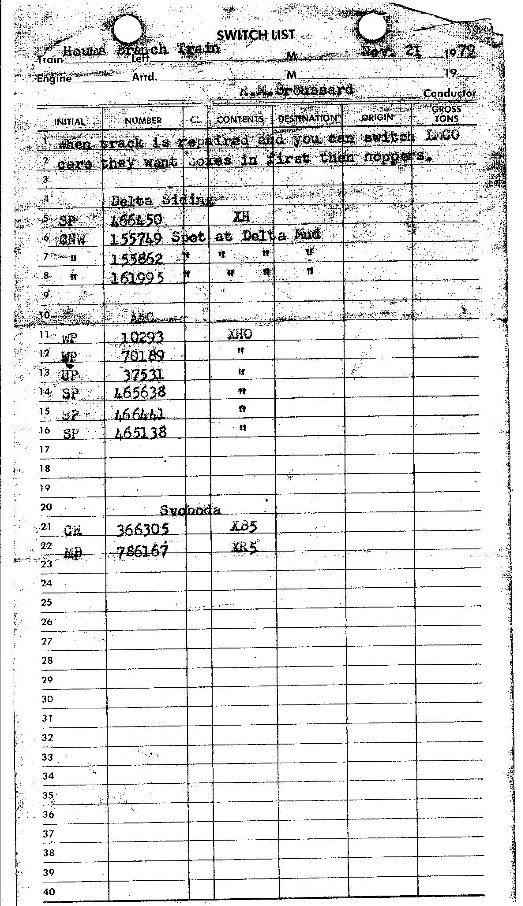 SWITCH LIST
Train Houma Branch Train Left M Nov. 21 1972
Engine Arrd. M 19
K.M. Broussard Conductor
INITIAL NUMBER C.L. CONTENTS DESTINATION ORIGIN GROSS TONS
1 When track is repaired and you can switch LACO
2 cars they want boxes in first then hoppers.
3
4 Delta Siding
5 SP 466450 XH
6 CNW 155749 Spot at Delta Mud
7 " 155862 " " " "
8 " 161995 " " " "
9
10
11 WP 10293 XHO
12 WP 70189 "
13 UP 37531 "
14 SP 465638 "
15 SP 466441 "
16 SP 465138 "
17
18
19
20 Svoboda
21 366305
22 MP 786167 XR5
23
24
25
26
27
28
29
30
31
32
33
34
35
36
37
38
39
40